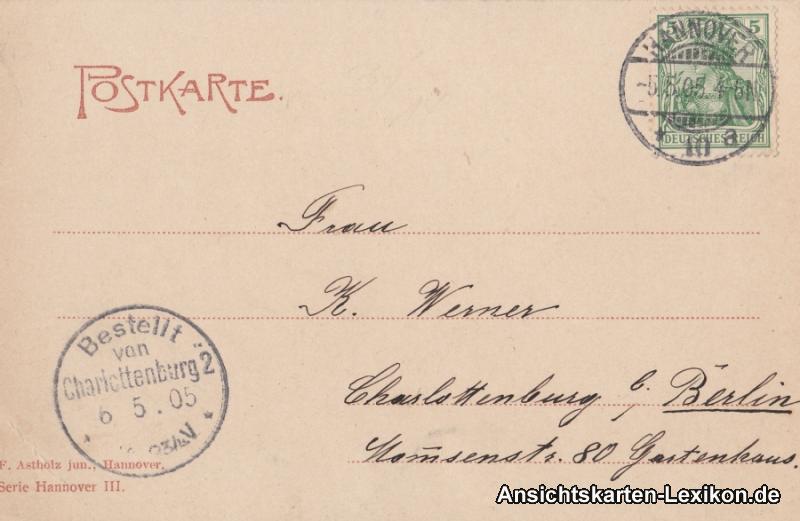 POSTKARTE.
5
DEUTSCHES REICH
HANNOVER
-5.5.05. 4-5N
* 10 a
Frau
K. Werner
Charlottenburg b. Berlin
Mom̅senstr. 80 Gartenhaus.
Bestellt
von
Charlottenburg 2
6 5 . 05
F. Astholz jun., Hannover.
Serie Hannover III.
Ansichtskarten-Lexikon.de